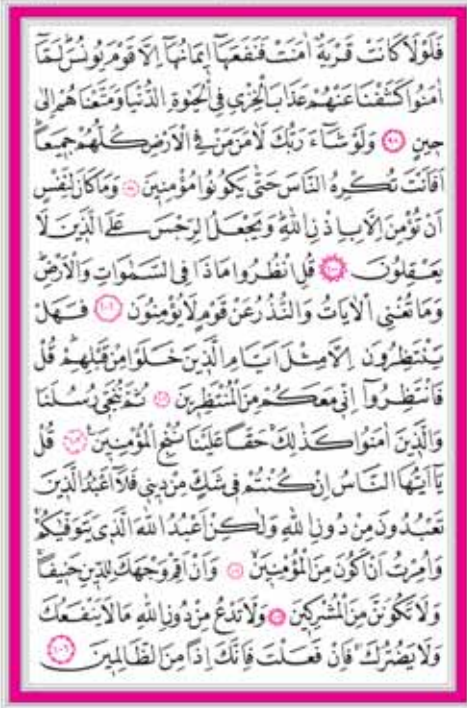 فَلَوْلَا كَانَتْ قَرْيَةٌ اٰمَنَتْ فَنَفَعَهَٓا ا۪يمَانُهَٓا اِلَّا قَوْمَ يُونُسَۜ لَمَّٓا
اٰمَنُوا كَشَفْنَا عَنْهُمْ عَذَابَ الْخِزْيِ فِي الْحَيٰوةِ الدُّنْيَا وَمَتَّعْنَاهُمْ اِلٰى
ح۪ينٍ ﴿٩٨﴾ وَلَوْ شَٓاءَ رَبُّكَ لَاٰمَنَ مَنْ فِي الْاَرْضِ كُلُّهُمْ جَم۪يعًاۜ
اَفَاَنْتَ تُكْرِهُ النَّاسَ حَتّٰى يَكُونُوا مُؤْمِن۪ينَ ﴿٩٩﴾ وَمَا كَانَ لِنَفْسٍ
اَنْ تُؤْمِنَ اِلَّا بِاِذْنِ اللّٰهِۜ وَيَجْعَلُ الرِّجْسَ عَلَى الَّذ۪ينَ لَا
يَعْقِلُونَ ﴿١٠٠﴾ قُلِ انْظُرُوا مَاذَا فِي السَّمٰوَاتِ وَالْاَرْضِۜ
وَمَا تُغْنِي الْاٰيَاتُ وَالنُّذُرُ عَنْ قَوْمٍ لَا يُؤْمِنُونَ ﴿١٠١﴾ فَهَلْ
يَنْتَظِرُونَ اِلَّا مِثْلَ اَيَّامِ الَّذ۪ينَ خَلَوْا مِنْ قَبْلِهِمْۜ قُلْ
فَانْتَظِرُٓوا اِنّ۪ي مَعَكُمْ مِنَ الْمُنْتَظِر۪ينَ ﴿١٠٢﴾ ثُمَّ نُنَجّ۪ي رُسُلَنَا
وَالَّذ۪ينَ اٰمَنُوا كَذٰلِكَۚ حَقًّا عَلَيْنَا نُنْجِ الْمُؤْمِن۪ينَ۟ ﴿١٠٣﴾ قُلْ
يَٓا اَيُّهَا النَّاسُ اِنْ كُنْتُمْ ف۪ي شَكٍّ مِنْ د۪ين۪ي فَلَٓا اَعْبُدُ الَّذ۪ينَ
تَعْبُدُونَ مِنْ دُونِ اللّٰهِ وَلٰكِنْ اَعْبُدُ اللّٰهَ الَّذ۪ي يَتَوَفّٰيكُمْۚ
وَاُمِرْتُ اَنْ اَكُونَ مِنَ الْمُؤْمِن۪ينَۙ ﴿١٠٤﴾ وَاَنْ اَقِمْ وَجْهَكَ لِلدّ۪ينِ حَن۪يفًاۚ
وَلَا تَكُونَنَّ مِنَ الْمُشْرِك۪ينَ ﴿١٠٥﴾ وَلَا تَدْعُ مِنْ دُونِ اللّٰهِ مَا لَا يَنْفَعُكَ
وَلَا يَضُرُّكَۚ فَاِنْ فَعَلْتَ فَاِنَّكَ اِذًا مِنَ الظَّالِم۪ينَ ﴿١٠٦﴾